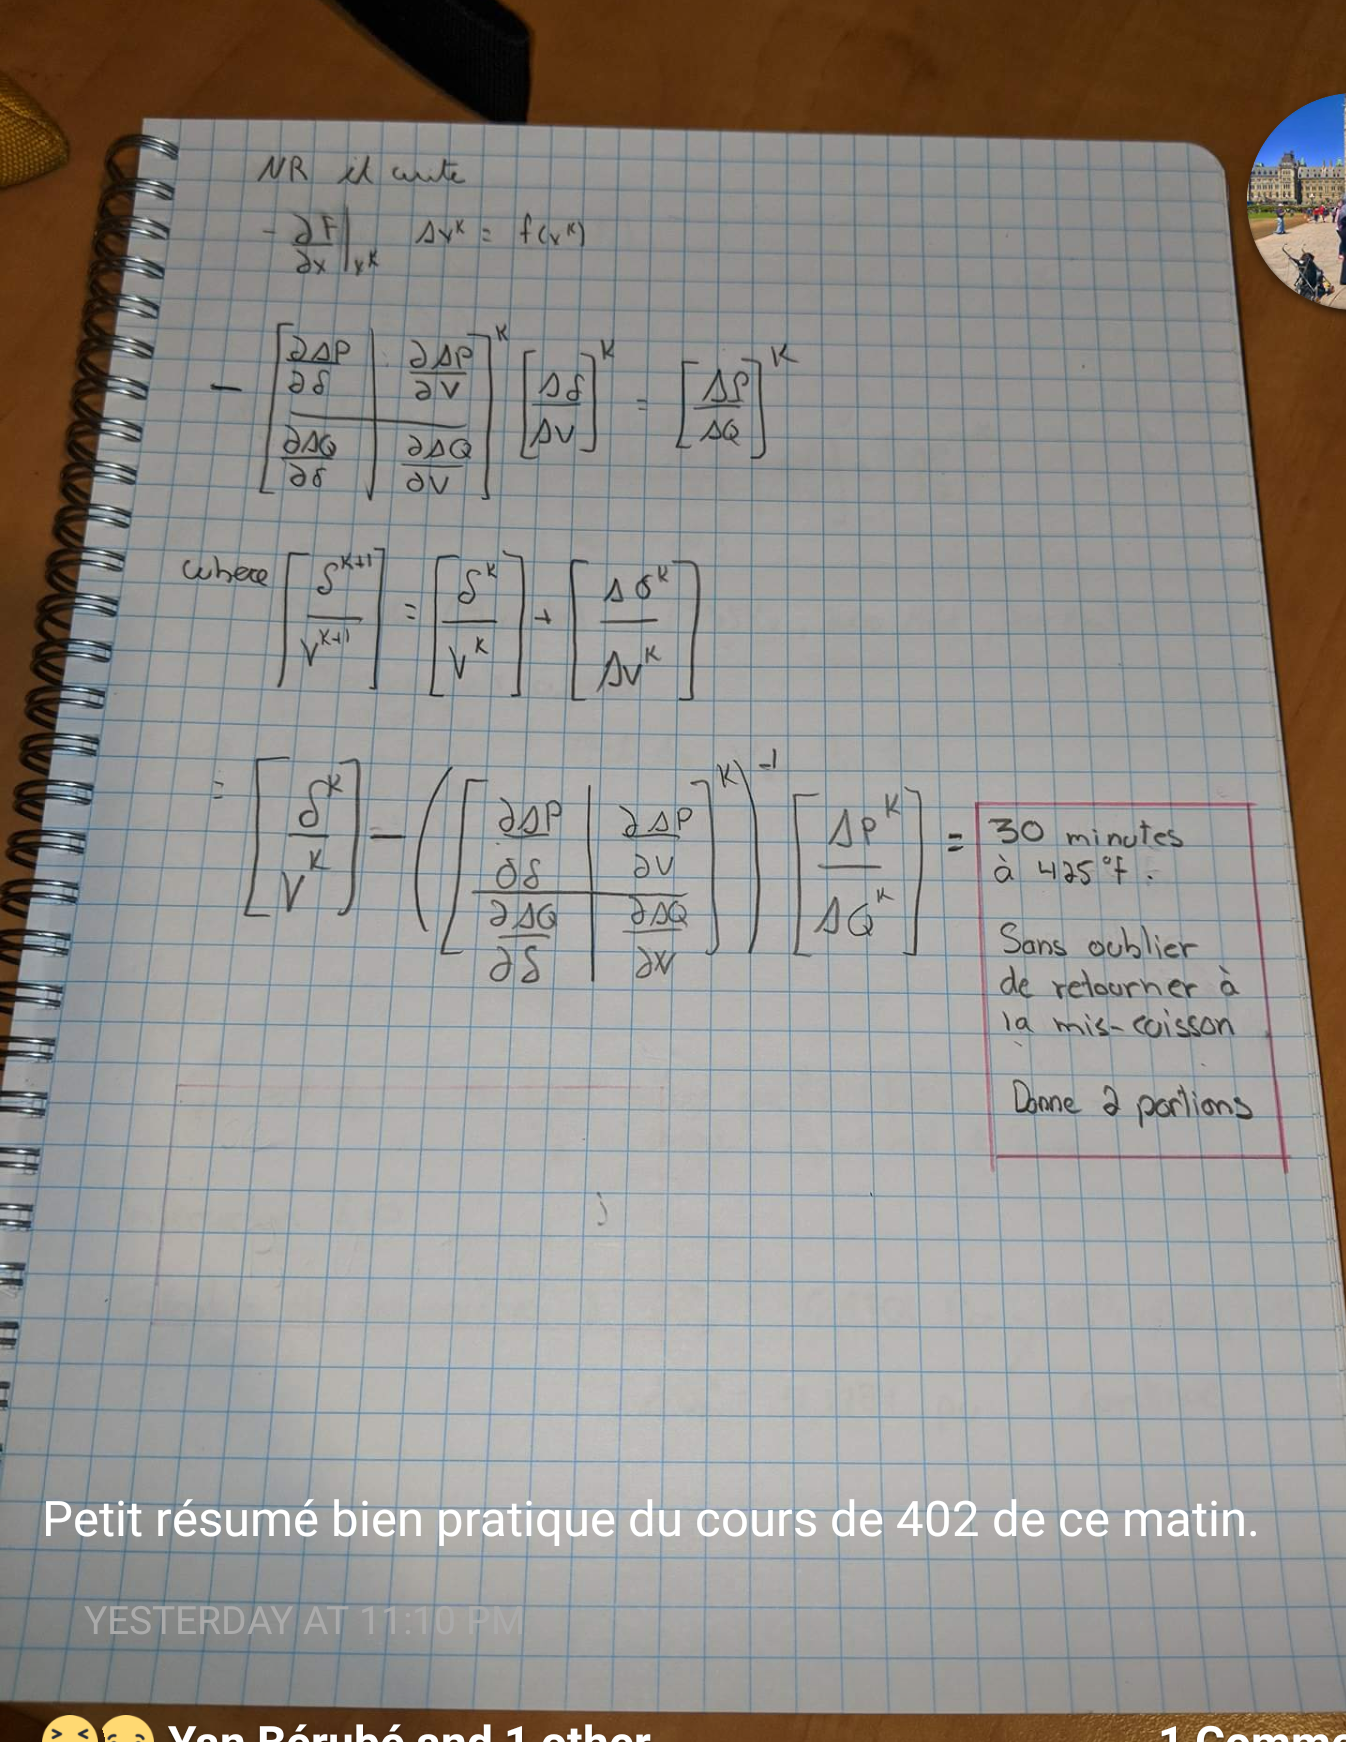 NR
- ∂F/∂x |x^k Δx^k = f(x^k)
- [∂ΔP/∂δ | ∂ΔP/∂V ; ∂ΔQ/∂δ | ∂ΔQ/∂V]^K [Δδ/ΔV]^K = [ΔP/ΔQ]^K
where [δ^K+1 / V^K+1] = [δ^K / V^K] + [Δδ^K / ΔV^K]
= [δ^K / V^K] - ([∂ΔP/∂δ | ∂ΔP/∂V ; ∂ΔQ/∂δ | ∂ΔQ/∂V]^K)^-1 [ΔP^K / ΔQ^K] =
30 minutes
à 425°f.
Sans oublier
de retourner à
la mis-cuisson
Donne 2 portions
Petit résumé bien pratique du cours de 402 de ce matin.
YESTERDAY AT 11:10 PM
Yan Bérubé and 1 other
1